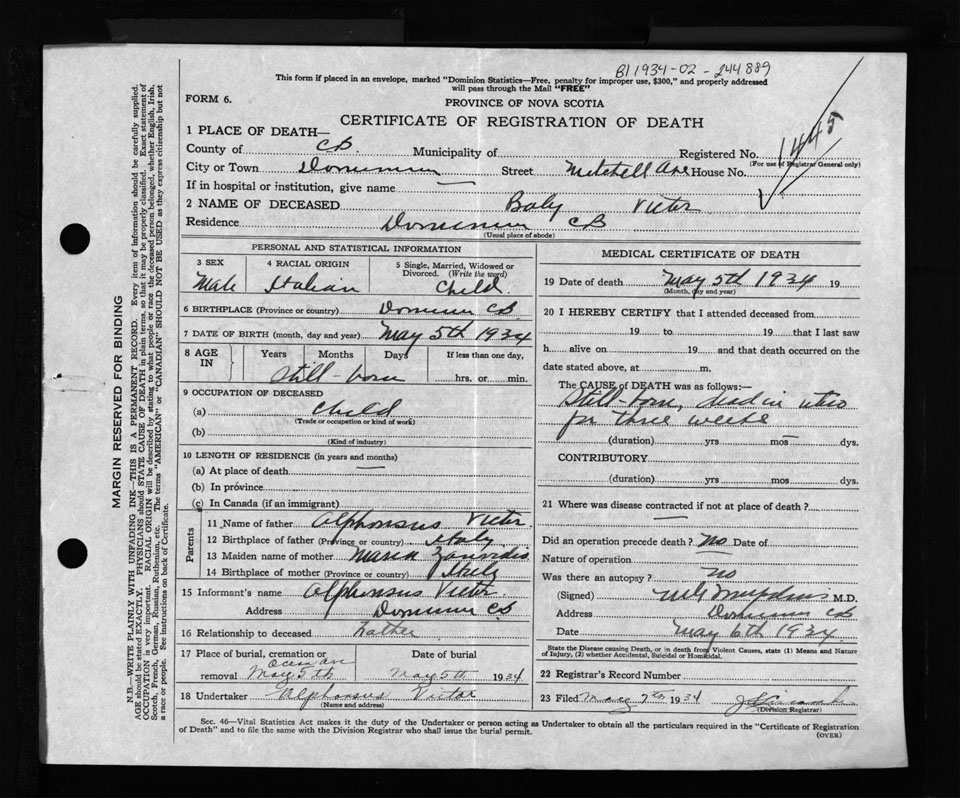 B11934-02-244889
This form if placed in an envelope, marked "Dominion Statistics—Free, penalty for improper use, $300," and properly addressed
will pass through the Mail "FREE"
FORM 6.
PROVINCE OF NOVA SCOTIA
CERTIFICATE OF REGISTRATION OF DEATH
1 PLACE OF DEATH—
County of CB Municipality of Registered No. 1445
(For use of Registrar General only)
City or Town Dominion Street Mitchell Ave House No.
If in hospital or institution, give name —
2 NAME OF DECEASED Baby Victor
Residence Dominion CB
(Usual place of abode)
PERSONAL AND STATISTICAL INFORMATION
3 SEX Male
4 RACIAL ORIGIN Italian
5 Single, Married, Widowed or Divorced. (Write the word) Child
6 BIRTHPLACE (Province or country) Dominion CB
7 DATE OF BIRTH (month, day and year) May 5th 1934
8 AGE IN Years Months Days If less than one day,
Still-born hrs. or min.
9 OCCUPATION OF DECEASED
(a) Child
(Trade or occupation or kind of work)
(b)
(Kind of industry)
10 LENGTH OF RESIDENCE (in years and months)
(a) At place of death —
(b) In province
(c) In Canada (if an immigrant)
Parents
11 Name of father Alphonsus Victor
12 Birthplace of father (Province or country) Italy
13 Maiden name of mother Maria
14 Birthplace of mother (Province or country) Italy
15 Informant's name Alphonsus Victor
Address Dominion CB
16 Relationship to deceased Father
17 Place of burial, cremation or removal May 5th
Date of burial May 5th 1934
18 Undertaker Alphonsus Victor
(Name and address)
MEDICAL CERTIFICATE OF DEATH
19 Date of death May 5th 1934 19
(Month, day and year)
20 I HEREBY CERTIFY that I attended deceased from
19 to 19 that I last saw
h alive on 19 and that death occurred on the
date stated above, at m.
The CAUSE OF DEATH was as follows:—
Still-born, dead in utero
for three weeks
(duration) yrs mos — dys.
CONTRIBUTORY
(duration) yrs mos dys.
21 Where was disease contracted if not at place of death?
—
Did an operation precede death? No Date of
Nature of operation
Was there an autopsy? no
(Signed) M.D.
Address Dominion CB
Date May 6th 1934
State the Disease causing Death, or in death from Violent Causes, state (1) Means and Nature of Injury, (2) whether Accidental, Suicidal or Homicidal.
22 Registrar's Record Number
23 Filed May 7th 1934
(Division Registrar)
Sec. 46—Vital Statistics Act makes it the duty of the Undertaker or person acting as Undertaker to obtain all the particulars required in the "Certificate of Registration
of Death" and to file the same with the Division Registrar who shall issue the burial permit.
(OVER)
MARGIN RESERVED FOR BINDING
N.B.—WRITE PLAINLY WITH UNFADING INK—THIS IS A PERMANENT RECORD. Every item of information should be carefully supplied.
AGE should be stated EXACTLY. PHYSICIANS should STATE CAUSE OF DEATH in plain terms, so that it may be properly classified. Exact statement of
OCCUPATION is very important. RACIAL ORIGIN will be described by stating to what people or race the deceased person belonged, whether English, Irish,
Scotch, French, German, Russian, Ruthenian, etc. The terms "AMERICAN" or "CANADIAN" SHOULD NOT BE USED as they express citizenship but not
a race or people. See instructions on back of Certificate.